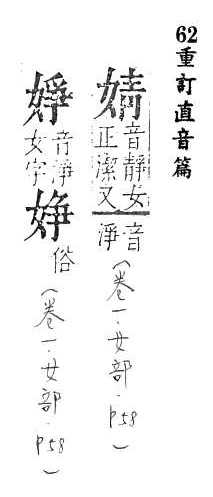 62重訂直音篇
婧音靜女正潔又音淨(卷一·女部·P58)
婙音淨女字㛀俗(卷一·女部·P58)